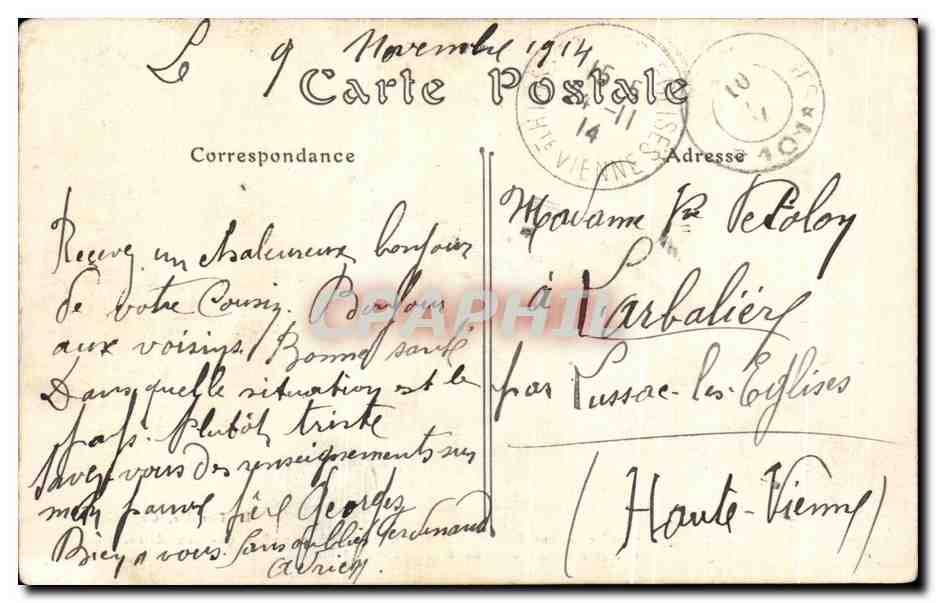 Le 9 Novembre 1914
Carte Postale
Correspondance
Adresse
Recevez un chaleureux bonjour
de votre Cousin. Bonjour
aux voisins. Bonne santé
Dans quelle situation est le
pays. Plutôt triste
Savez-vous des renseignements sur
mon pauvre frère Georges
Bien à vous. Sans oublier Ferdinand
Adrien.
Madame Vve Petolon
à Larbalière
par Lussac-les-Eglises
(Haute-Vienne)
11
14
HTE VIENNE
10
CPAPHIL